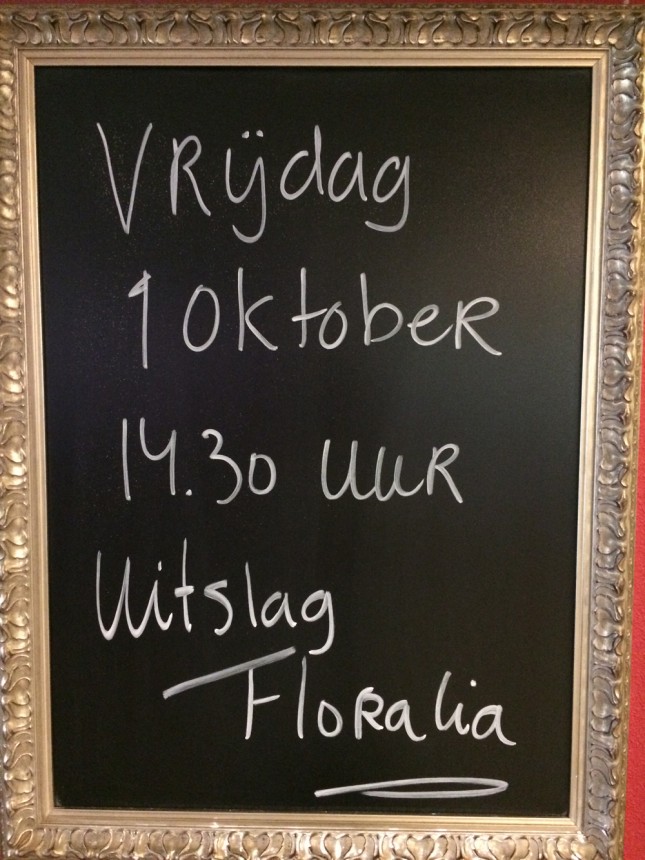 Vrijdag
1 Oktober
14.30 uur
Uitslag
Floralia